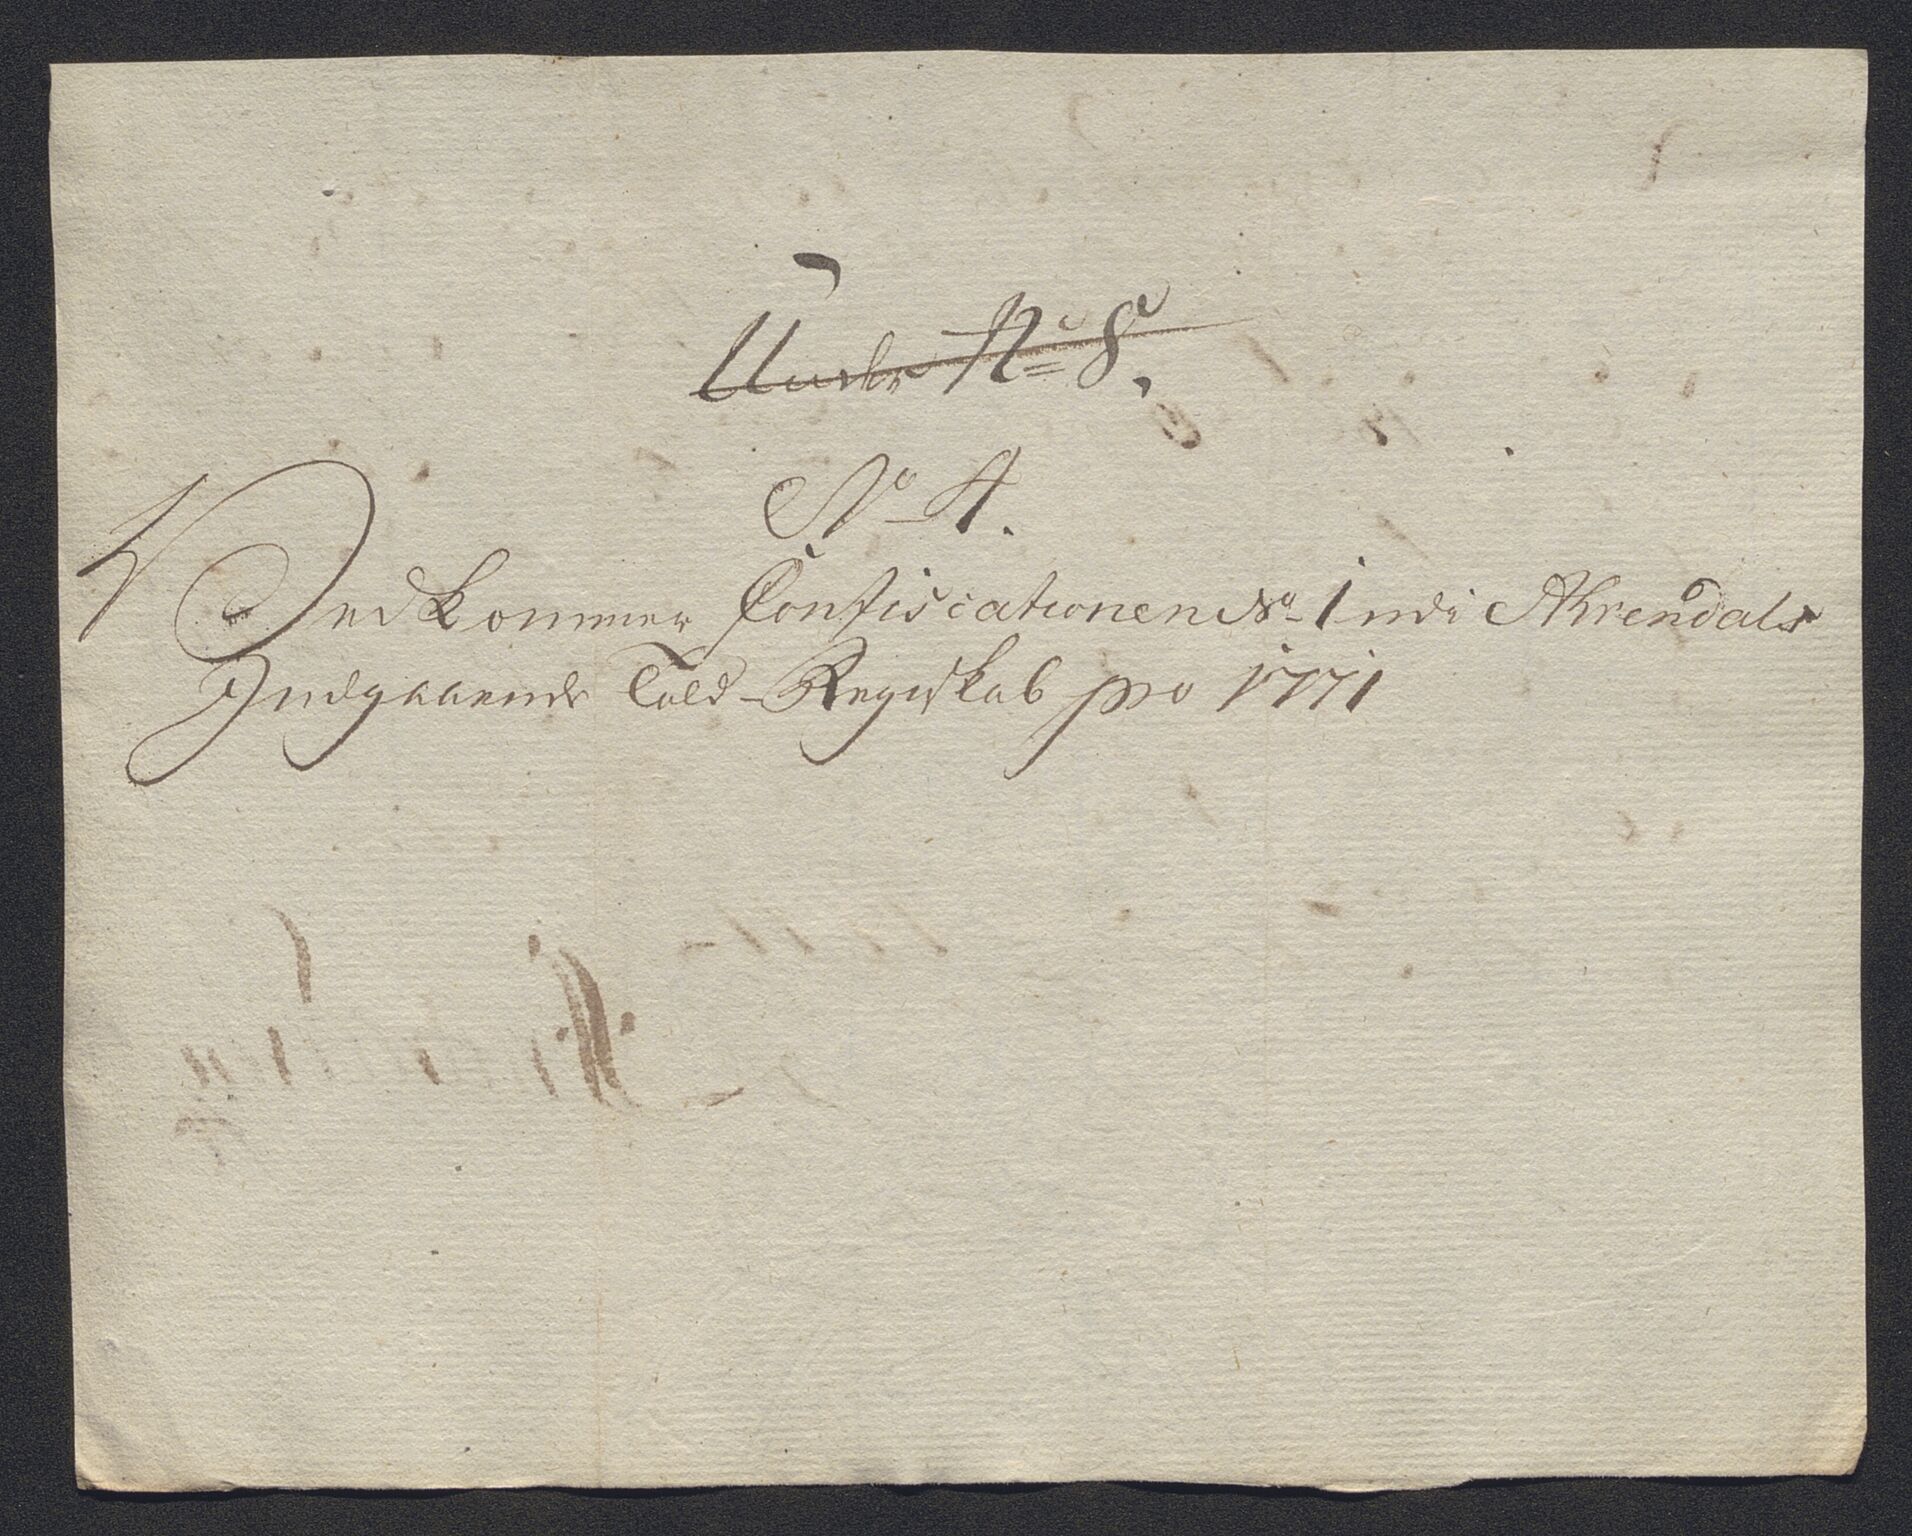 Under No 8.
No 4.
Vedkommer Confiscationen No 1 udi Ahrendals
Indgaaende Told-Regnskab pro 1771